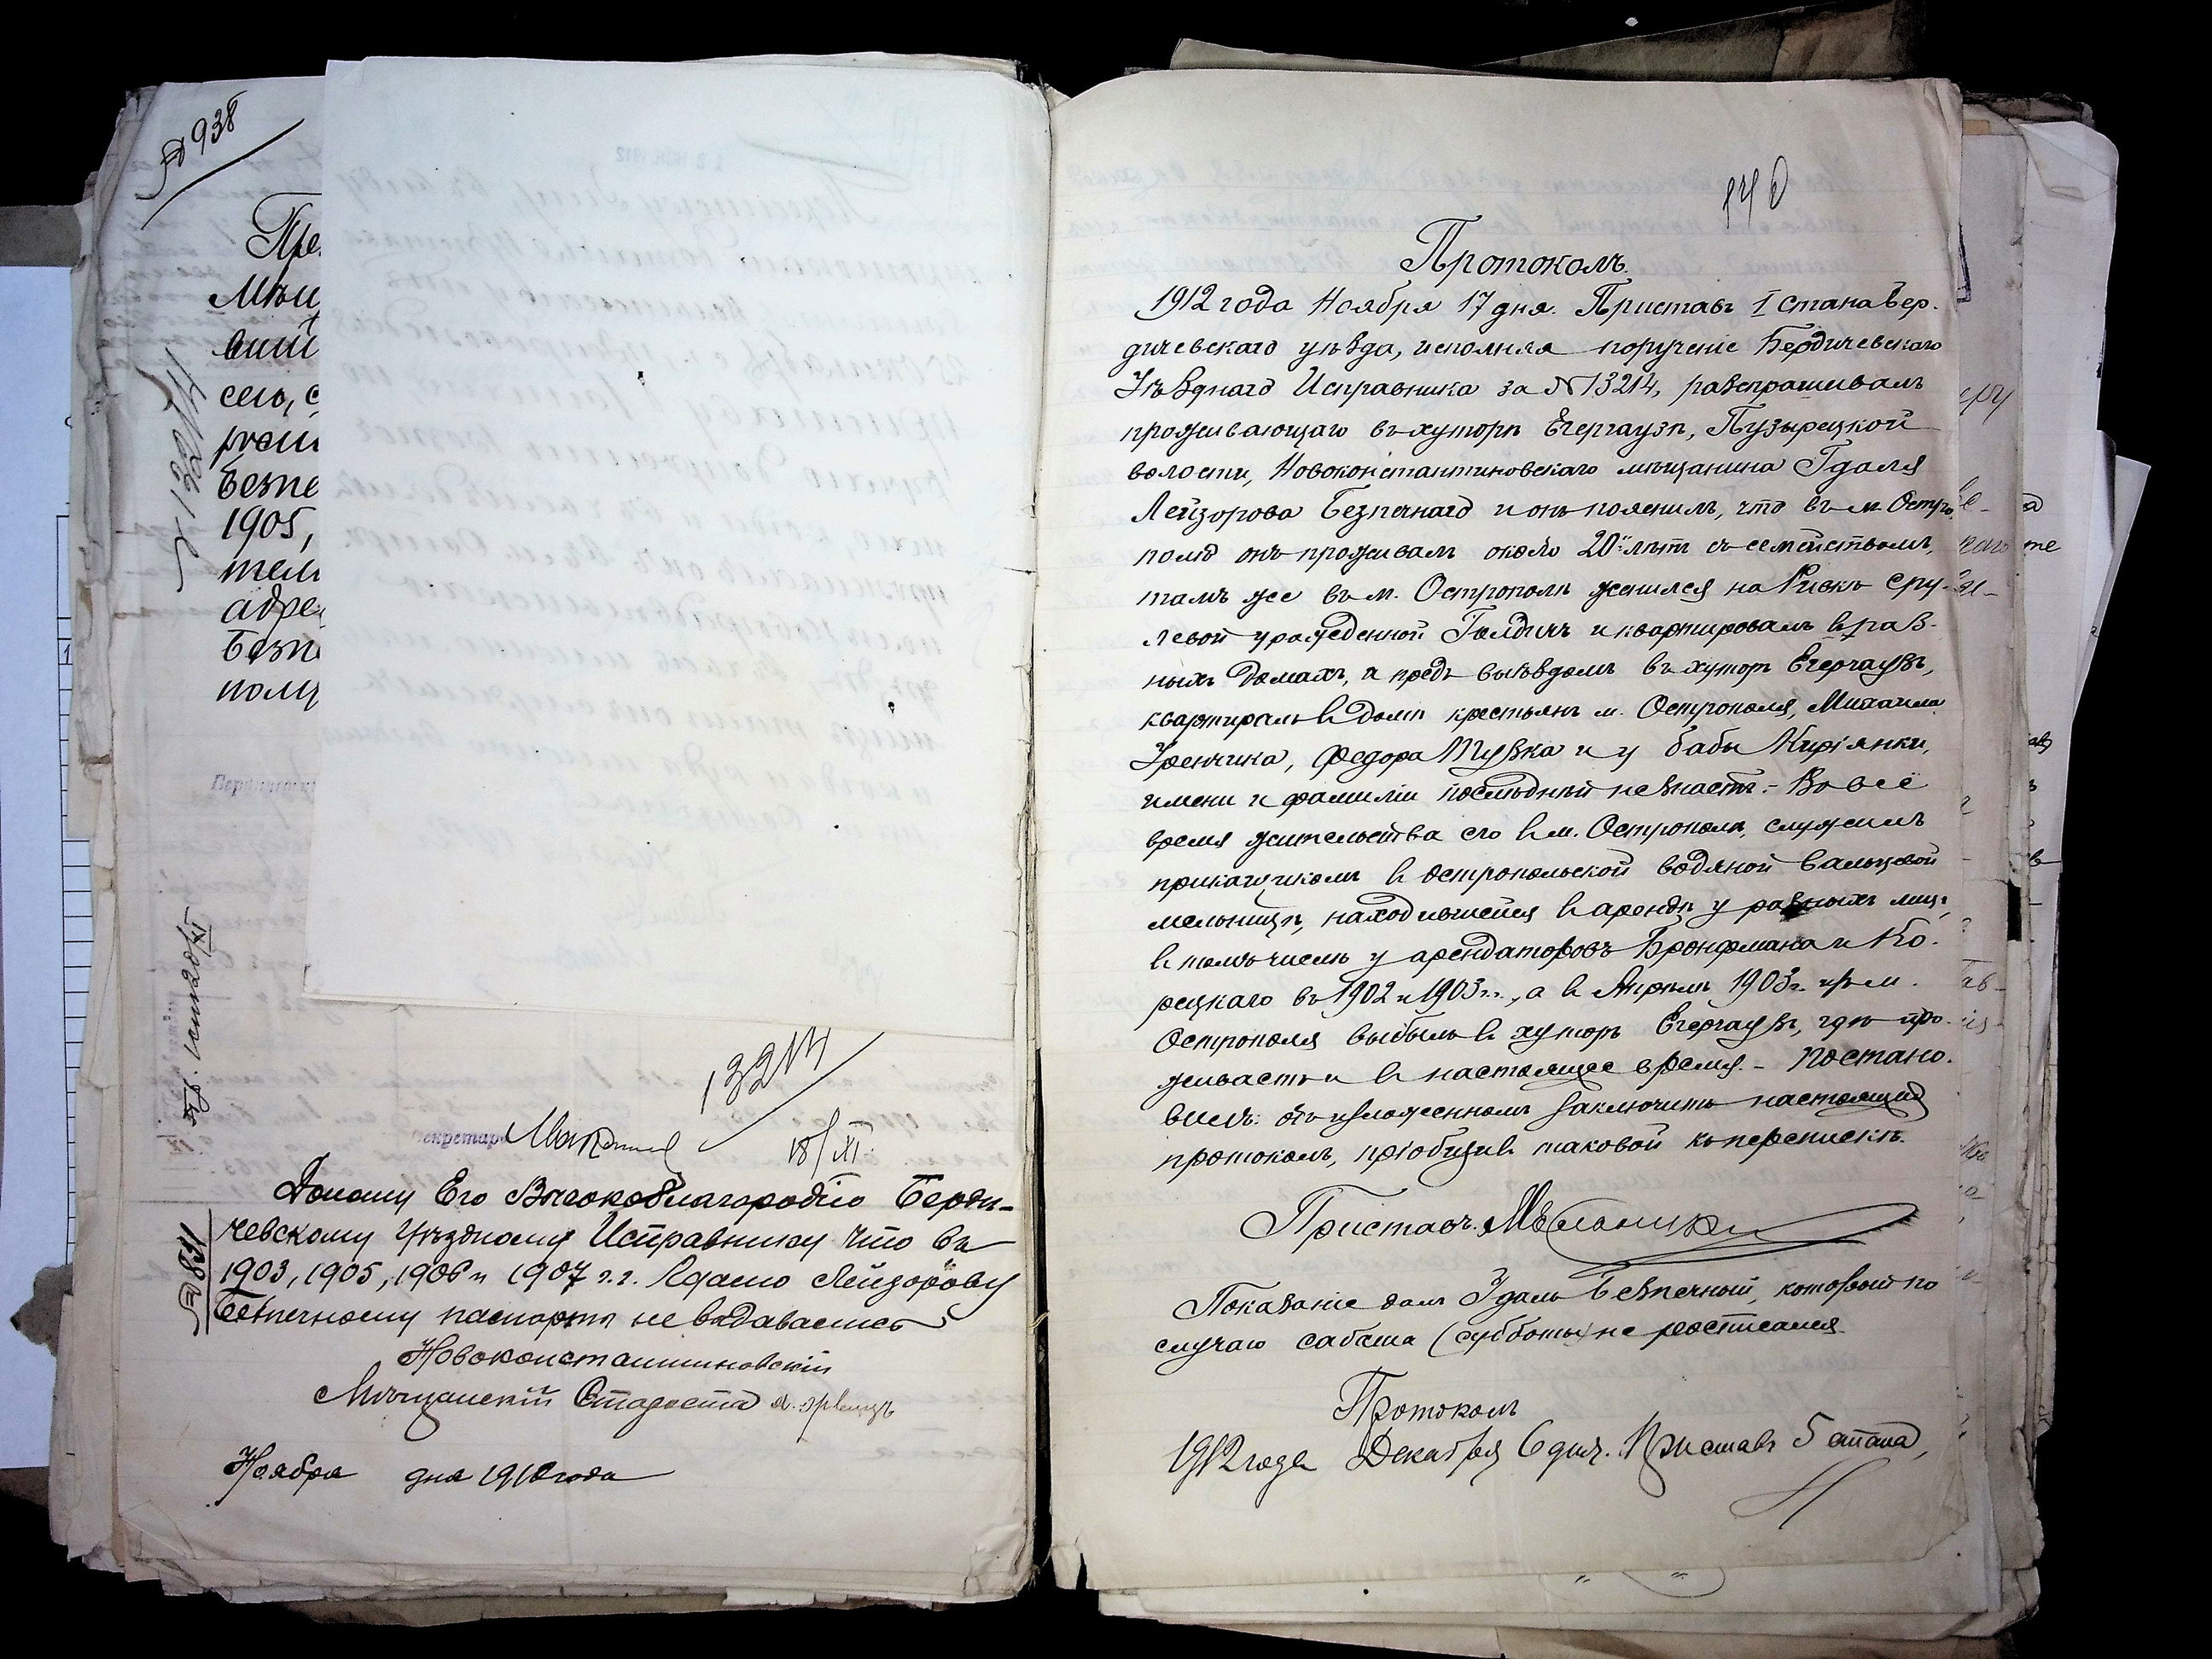 № 938
Пре
Мѣщ
вшій
сею, с
росш
Безпе
1905,
тель
адре
Безп
полу
№ 13214
13214
Секретарь
18/XI
Доношу Его Высокоблагородію Берди-
чевскому Уѣздному Исправнику что въ
1903, 1905, 1906 и 1907 г.г. Гдалю Лейзорову
Безпечному паспорта не выдавались
№ 831
Новоконстантиновскій
Мѣщанскій Староста
Ноября дня 1912 года
140
Протоколъ.
1912 года Ноября 17 дня. Приставъ I стана Бер-
дичевскаго уѣзда, исполняя порученіе Бердичевскаго
Уѣзднаго Исправника за № 13214, разспрашивалъ
проживающаго въ хуторѣ Егергаузъ, Пузырецкой
волости, Новоконстантиновскаго мѣщанина Гдаля
Лейзорова Безпечнаго и онъ пояснилъ, что въ м. Остро-
полѣ онъ проживалъ около 20 лѣтъ съ семействомъ,
тамъ же въ м. Острополѣ женился на Ривкѣ Сру-
левой урожденной Голдичъ и квартировалъ въ раз-
ныхъ домахъ, и предъ выѣздомъ въ хуторъ Егергаузъ,
квартировалъ въ домѣ крестьянъ м. Острополя, Михаила
Уренчика, Федора Тузка и у бабы Кирiянки,
имени и фамиліи послѣдній не знаетъ. - Во всё
время жительства его въ м. Острополѣ, служилъ
прикащикомъ въ остропольской водяной вальцевой
мельницѣ, находившейся въ арендѣ у разныхъ лицъ,
въ томъ числѣ у арендаторовъ Бронфмана и Ко-
рецкаго въ 1902 и 1903 г.г., а въ Апрѣлѣ 1903 г. изъ м.
Острополя выбылъ въ хуторъ Егергаузъ, гдѣ про-
живаетъ и въ настоящее время. - Постано-
вилъ: объ изложенномъ заключить настоящій
протоколъ, пріобщивъ таковой къ перепискѣ.
Приставъ
Показаніе далъ Гдаль Безпечный, который по
случаю сабаша (субботы) не росписался
Протоколъ
1912 года Декабря 6 дня. Приставъ 5 стана,